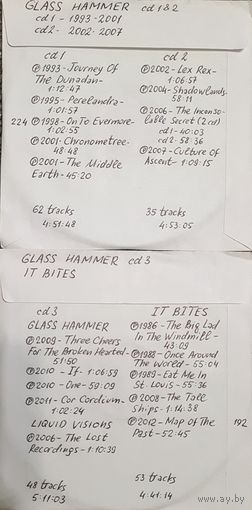 GLASS HAMMER cd 1&2
cd 1 - 1993-2001
cd 2 - 2002-2007
cd 1
℗ 1993 - Journey Of
The Dunadan -
1:12:47
℗ 1995 - Perelandra -
1:01:57
224 ℗ 1998 - On To Evermore -
1:02:55
℗ 2001 - Chronometree -
48:48
℗ 2001 - The Middle
Earth - 45:20
62 tracks
4:51:48
cd 2
℗ 2002 - Lex Rex -
1:06:57
℗ 2004 - Shadowlands
58:11
℗ 2006 - The Inconso-
lable Secret (2 cd)
cd 1 - 40:03
cd 2 - 58:36
℗ 2007 - Culture Of
Ascent - 1:09:15
35 tracks
4:53:05
GLASS HAMMER cd 3
IT BITES
cd 3
GLASS HAMMER
℗ 2009 - Three Cheers
For The Broken Hearted -
51:50
℗ 2010 - If - 1:06:59
℗ 2010 - One - 59:09
℗ 2011 - Cor Cordium -
1:02:24
LIQUID VISIONS
℗ 2006 - The Lost
Recordings - 1:10:39
48 tracks
5:11:03
IT BITES
℗ 1986 - The Big Lad
In The Windmill -
43:09
℗ 1988 - Once Around
The World - 55:04
℗ 1989 - Eat Me In
St. Louis - 55:36
℗ 2008 - The Tall
Ships - 1:14:38
℗ 2012 - Map Of The 192
Past - 52:45
53 tracks
4:41:14
ay.by